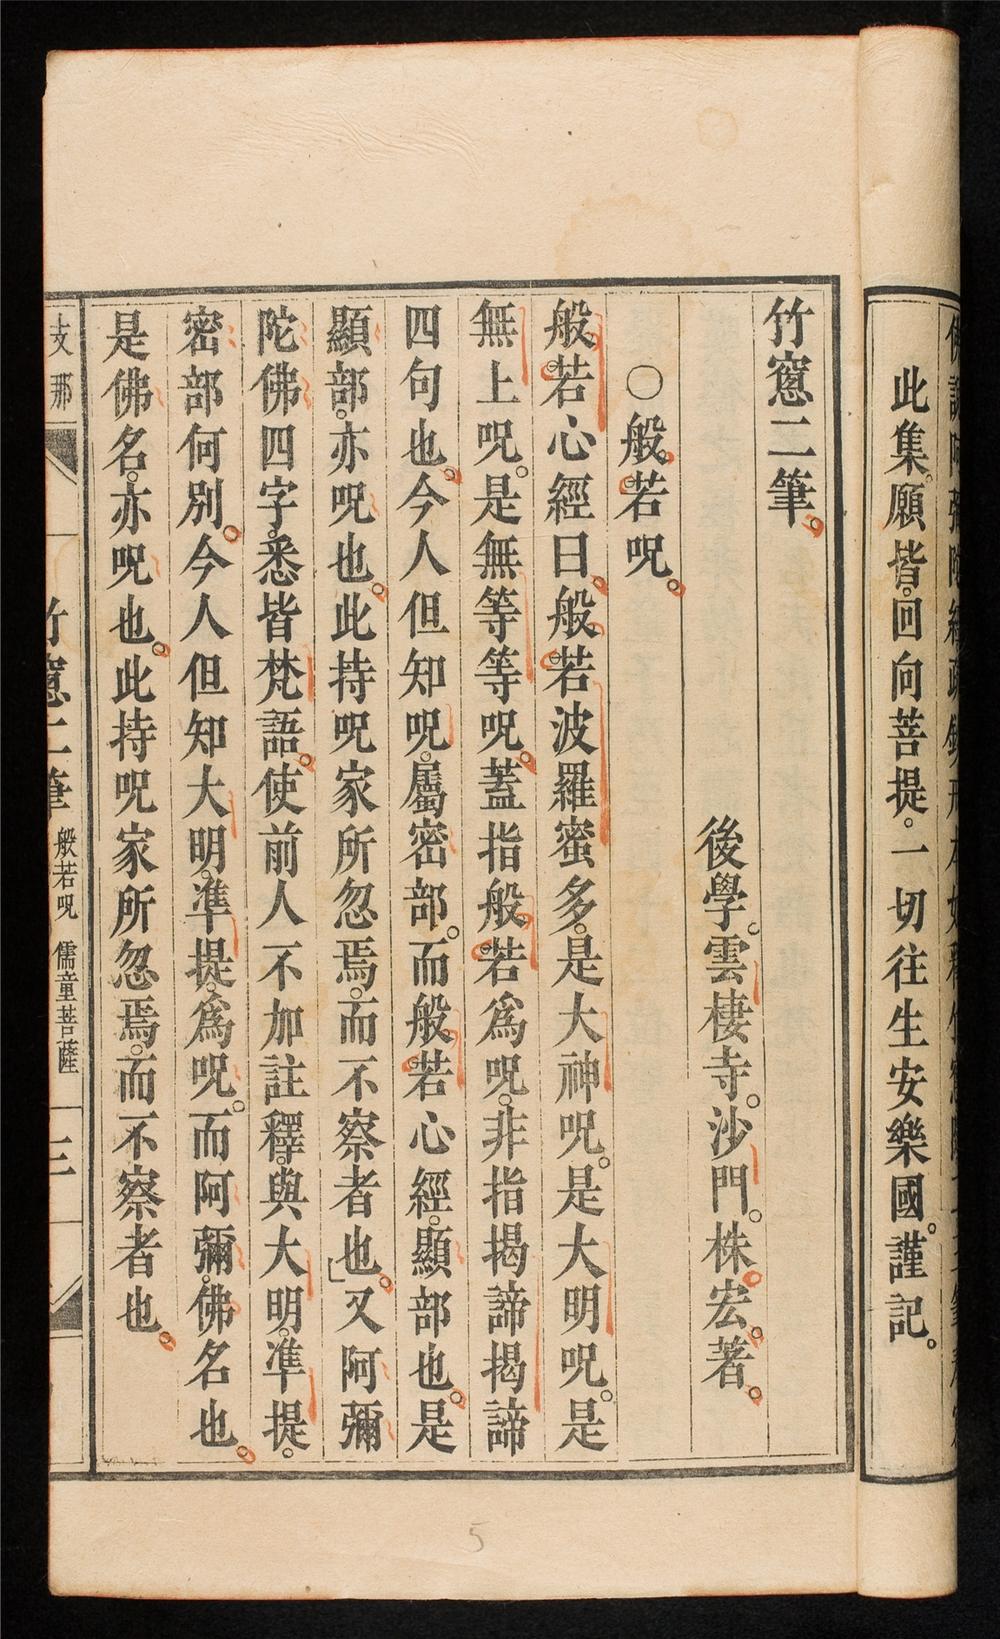 此集。願皆回向菩提。一切往生安樂國。謹記。
竹窻二筆。
後學。雲棲寺。沙門。株宏。著。
〇般若呪。
般若心經曰。般若波羅蜜多。是大神呪。是大明呪。是
無上呪。是無等等呪。蓋指般若爲呪。非指揭諦揭諦
四句也。今人但知呪。屬密部。而般若心經。顯部也。是
顯部。亦呪也。此持呪家所忽焉。而不察者也。又阿彌
陀佛四字。悉皆梵語。使前人不加註釋。與大明。準提。
密部何別。今人但知大明。準提。爲呪。而阿彌。佛名也。
是佛名。亦呪也。此持呪家所忽焉。而不察者也。
支那
竹窻二筆
般若呪 儒童菩薩
三
5